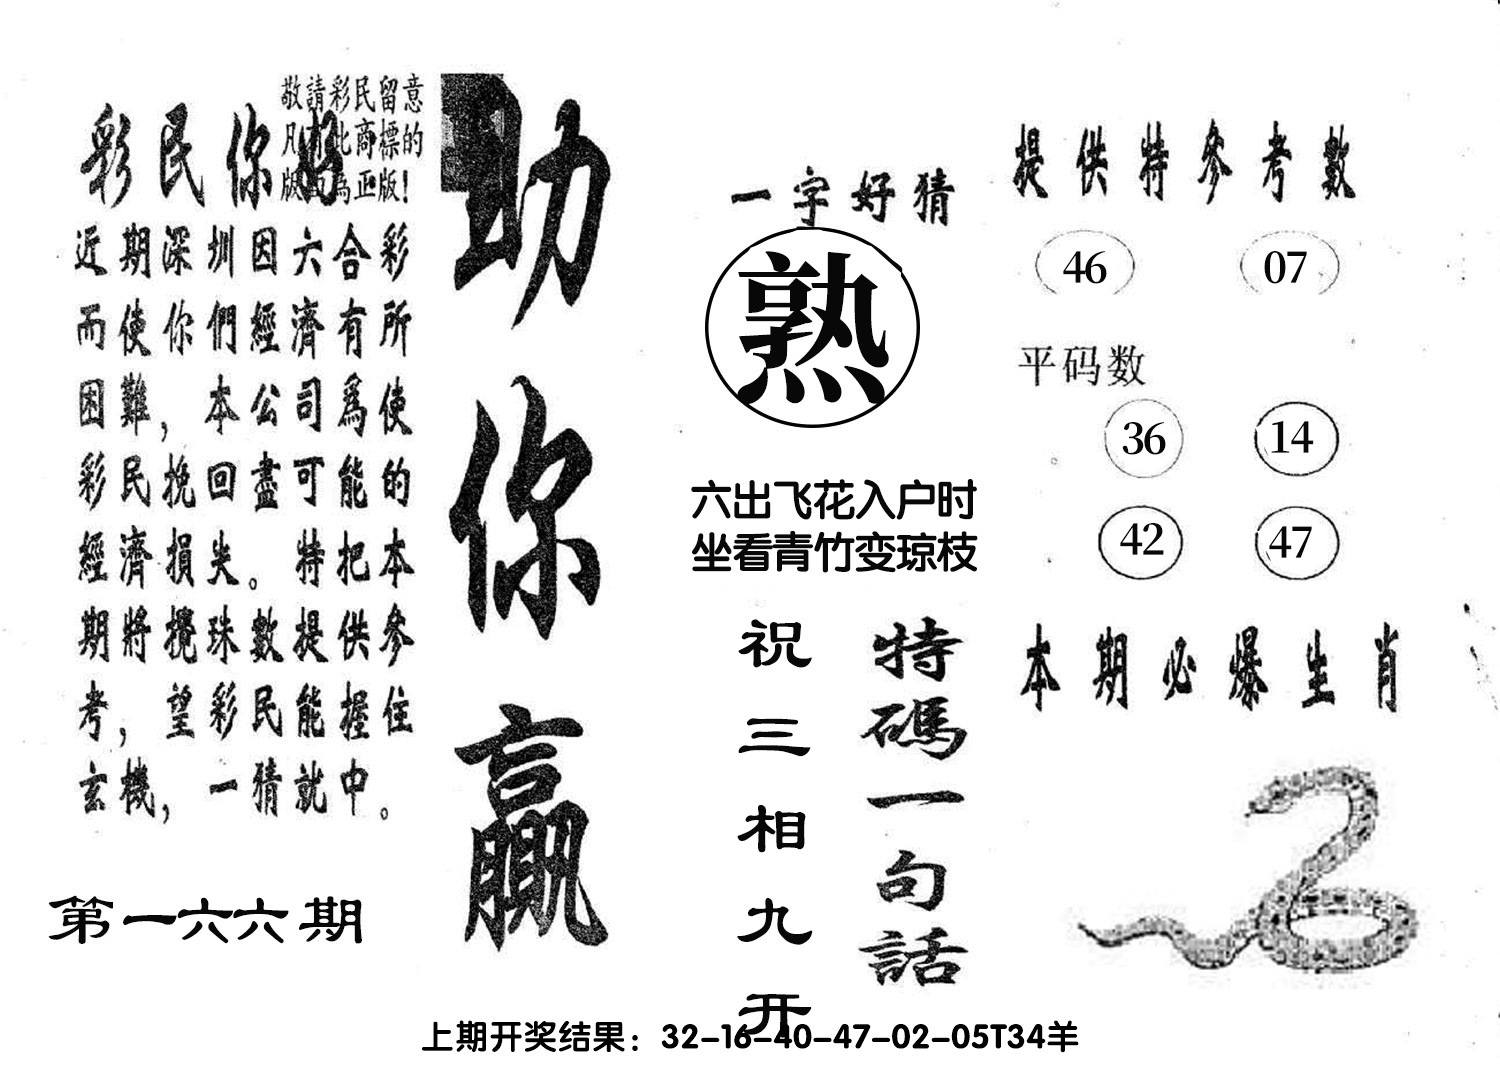 敬請彩民留意
凡有此商標的
版面為正版!
彩民你好
近期深圳因六合彩
而使你們經濟有所
困難，本公司爲使
彩民挽回盡可能的
經濟損失。特把本
期將攪珠數提供參
考，望彩民能握住
玄機，一猜就中。
第一六六期
助你贏
一字好猜
熟
六出飞花入户时
坐看青竹变琼枝
特碼一句話
祝三相九开
提供特參考數
46 07
平码数
36 14
42 47
本期必爆生肖
上期开奖结果：32-16-40-47-02-05T34羊